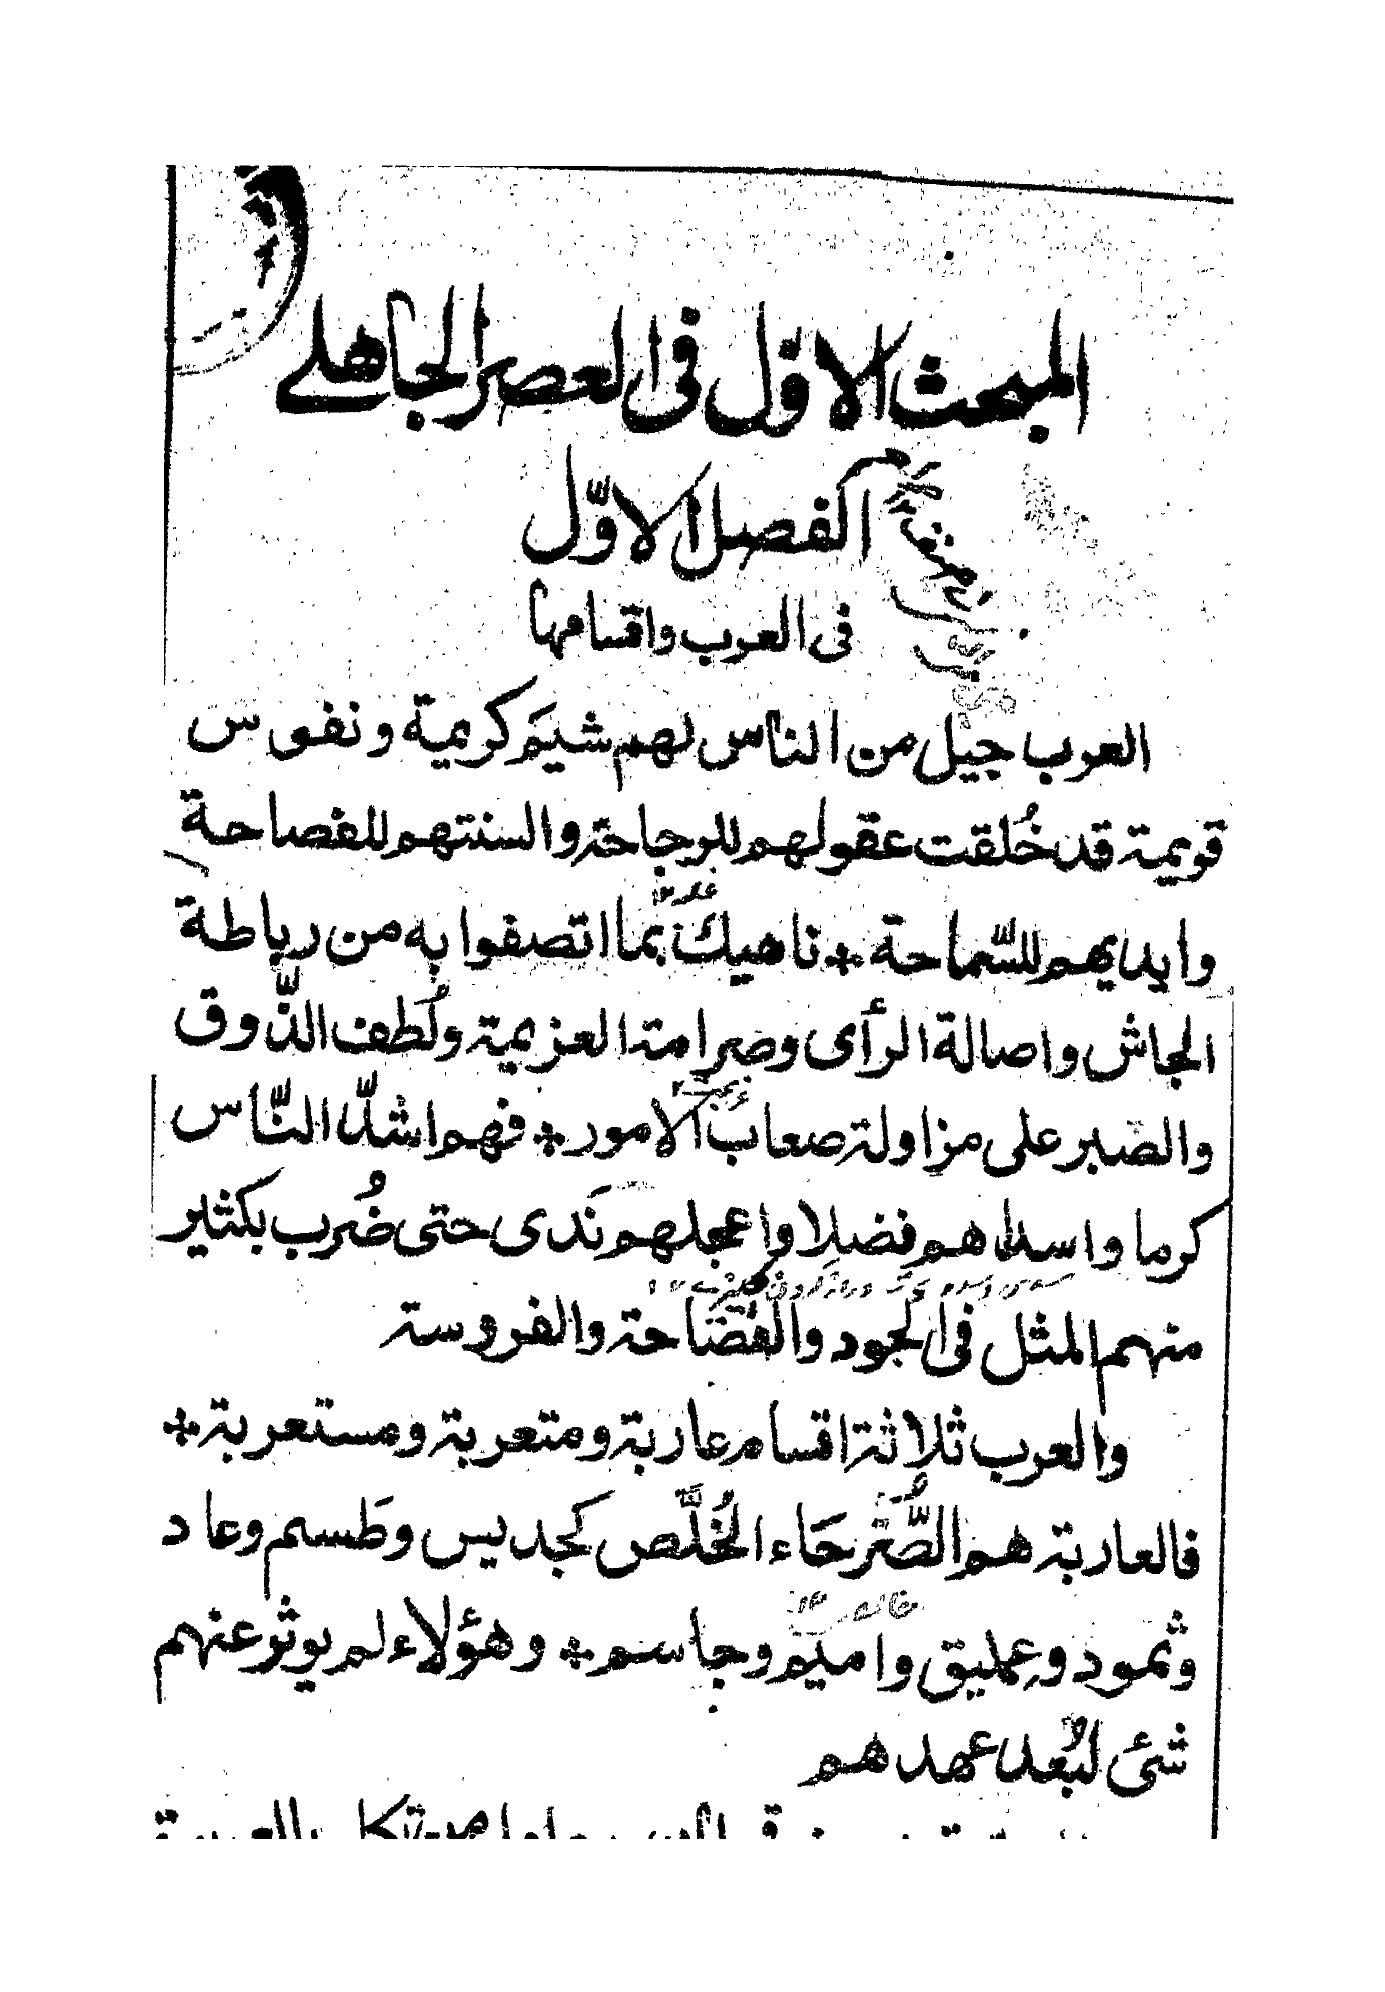 المبحث الاوّل فى العصر الجاهلے
الفصل الاوّل
فى العرب واقسامها
العرب جيل من الناس لهم شيَم كريمة ونفوس
قويمة قد خُلقت عقولهم للرجاحة والسنتهم للفصاحة
وايديهم للسّماحة ناهيك بما اتصفوا به من رباطة
الجاش واصالة الرأى وصرامة العزيمة ولُطف الذّوق
والصبر على مزاولة صعاب الامور فهم اشدّ النّاس
كرما واسداهم فضلا واعجلهم نَدى حتى ضُرب بكثير
منهم المثل فى الجود والفصاحة والفروسة
والعرب ثلاثة اقسام عاربة ومتعربة ومستعربة
فالعاربة هم الصُّرَحَاء الخُلَّص كجديس وطَسم وعاد
وثمود وعمليق واميم وجاسم وهؤلاء لم يوثر عنهم
شئ لبُعد عهدهم